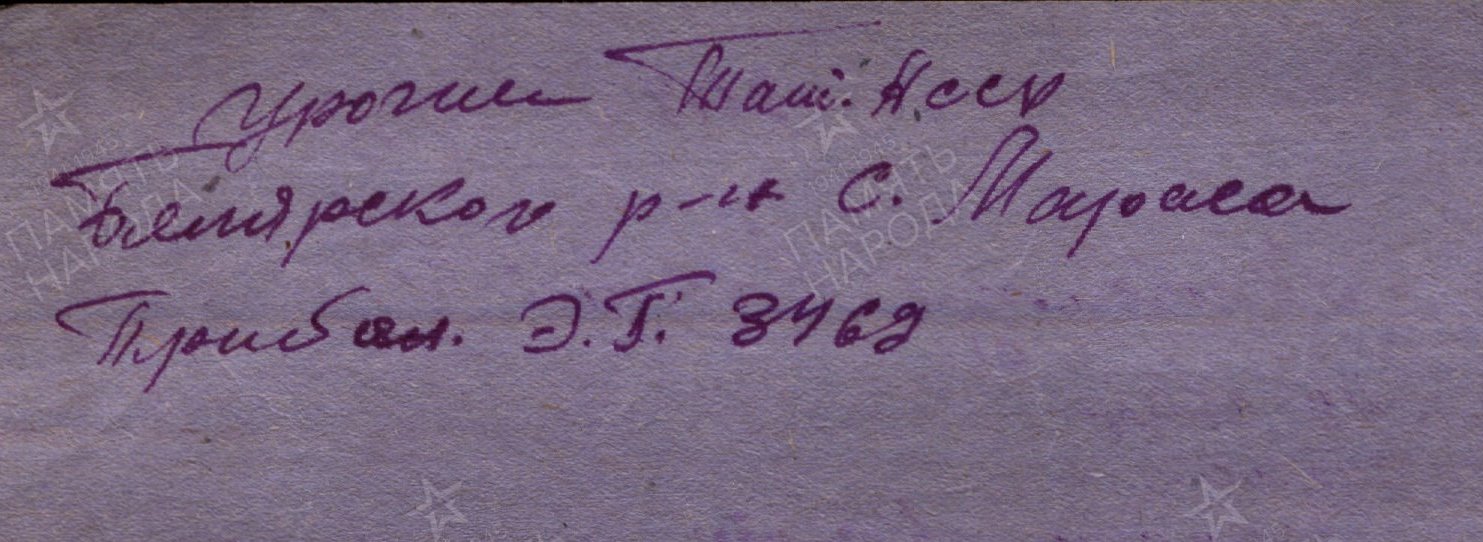 Урожен Тат. Асср
Билярского р-на с. Мараса
Прибыл. Э.Г. 3469
ПАМЯТЬ НАРОДА
ПАМЯТЬ НАРОДА